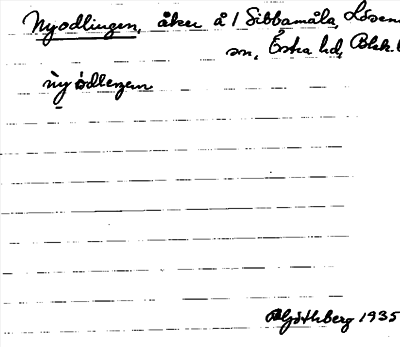 Nyodlingen, åker å 1 Sibbamåla, Lösens
sn, Östra hd, Blek. l
ǹy ò̀dlengen
Göthberg 1935